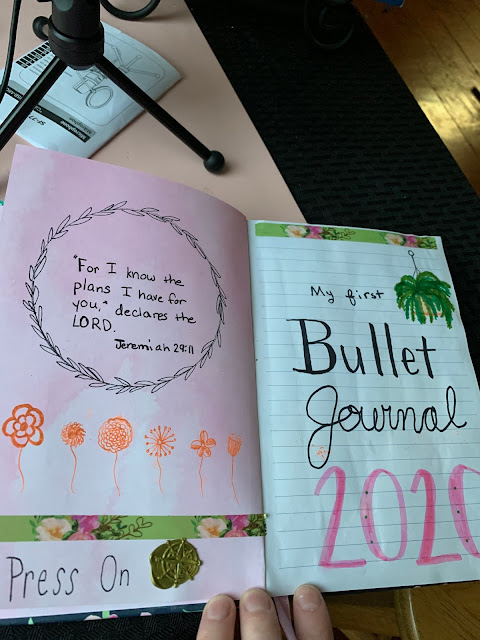 "For I know the
plans I have for
you," declares the
LORD.
Jeremiah 29:11
Press On
My first
Bullet
Journal
2020